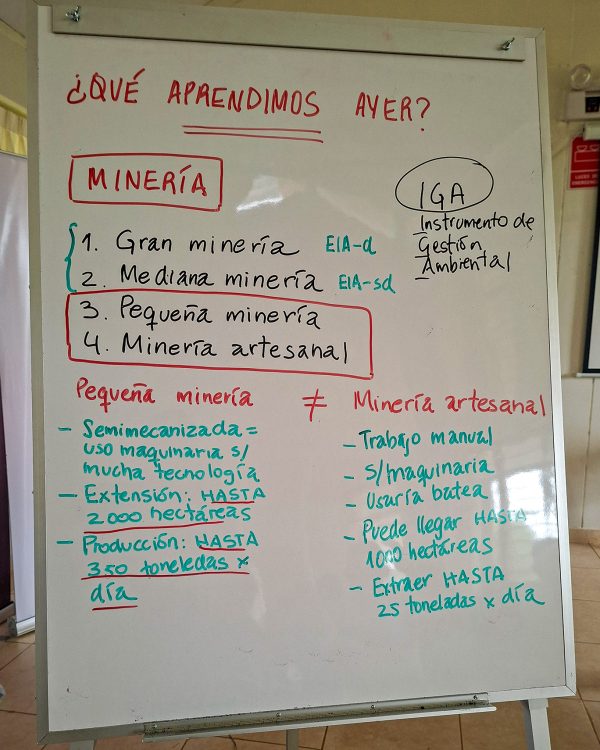 ¿QUÉ APRENDIMOS AYER?
MINERÍA
1. Gran minería EIA-d
2. Mediana minería EIA-sd
3. Pequeña minería
4. Minería artesanal
IGA
Instrumento de
Gestión
Ambiental
Pequeña minería ≠ Minería artesanal
- Semimecanizada =
uso maquinaria s/
mucha tecnología
- Extensión: HASTA
2000 hectáreas
- Producción: HASTA
350 toneledas x
día
- Trabajo manual
- s/maquinaria
- Usaría batea
- Puede llegar HASTA
1000 hectáreas
- Extraer HASTA
25 toneladas x día